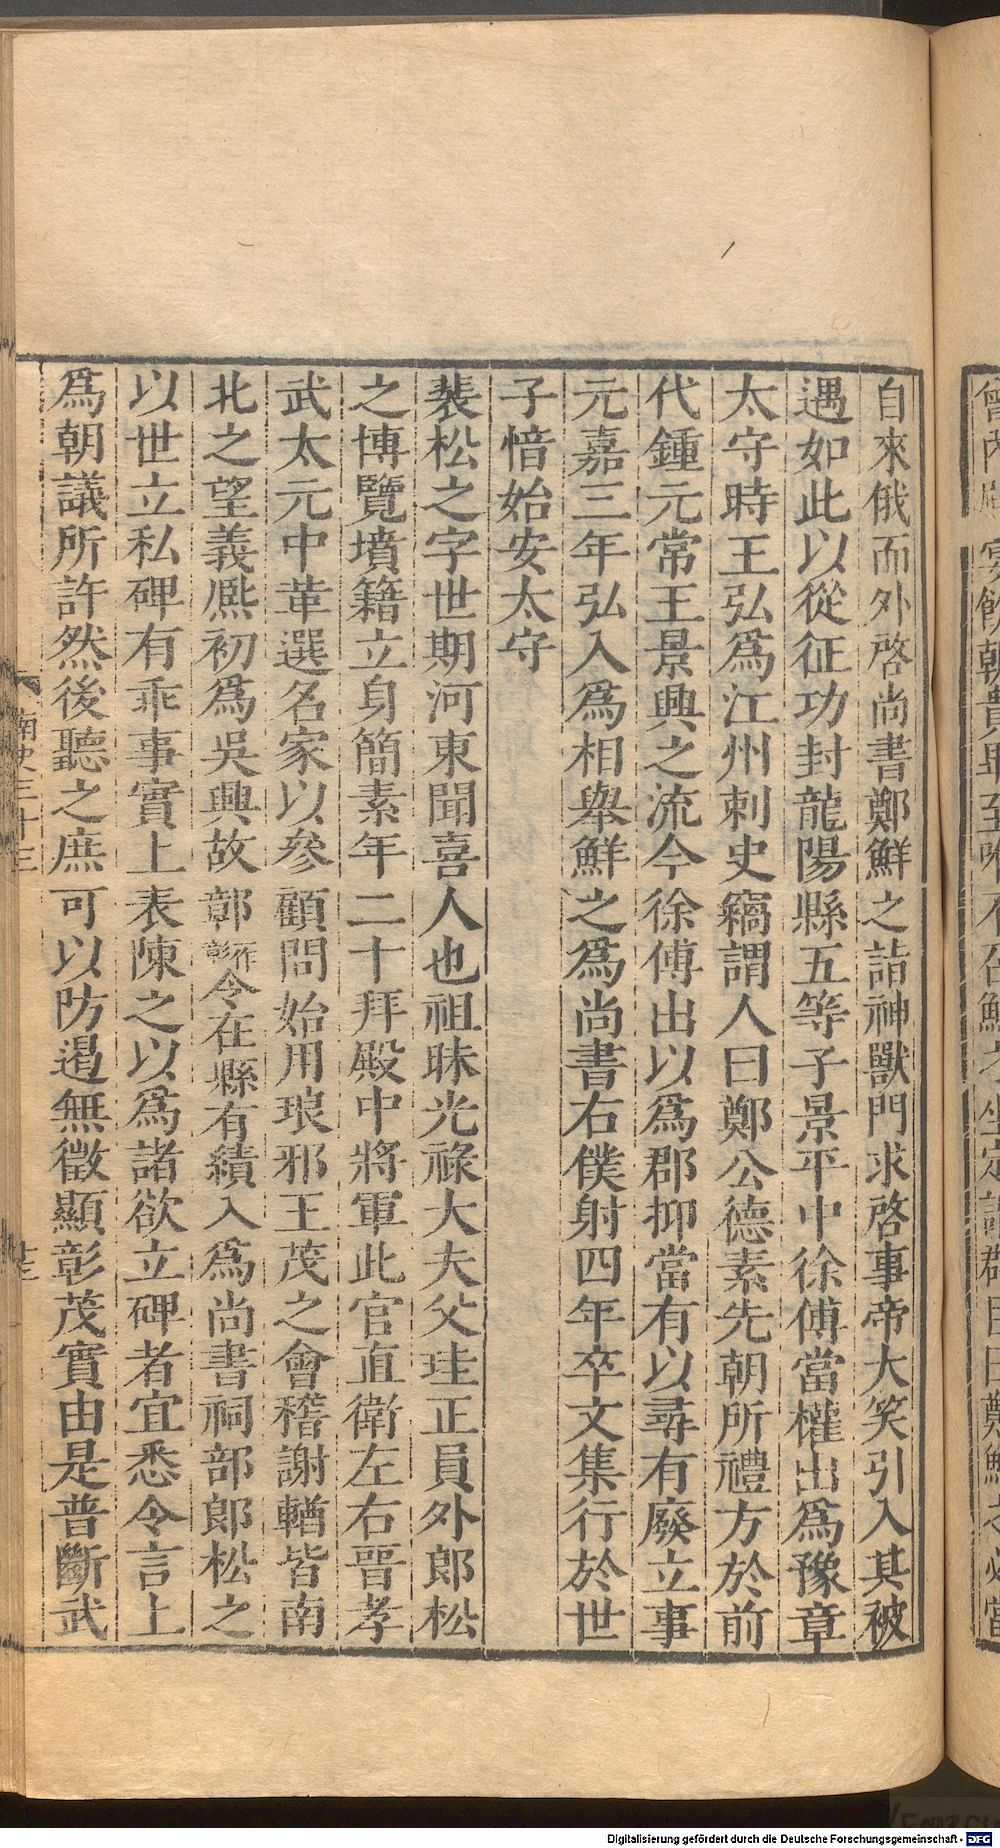 自來俄而外啓尚書鄭鮮之詣神獸門求啓事帝大笑引入其被
遇如此以從征功封龍陽縣五等子景平中徐傅當權出爲豫章
太守時王弘爲江州刺史竊謂人曰鄭公德素先朝所禮方於前
代鍾元常王景興之流今徐傅出以爲郡抑當有以尋有廢立事
元嘉三年弘入爲相舉鮮之爲尚書右僕射四年卒文集行於世
子愔始安太守
裴松之字世期河東聞喜人也祖昧光祿大夫父珪正員外郎松
之博覽墳籍立身簡素年二十拜殿中將軍此官直衛左右晉孝
武太元中革選名家以參顧問始用琅邪王茂之會稽謝輶皆南
北之望義熙初爲吳興故鄣作彰令在縣有績入爲尚書祠部郎松之
以世立私碑有乖事實上表陳之以爲諸欲立碑者宜悉令言上
爲朝議所許然後聽之庶可以防遏無徵顯彰茂實由是普斷武
南史三十三
Digitalisierung gefördert durch die Deutsche Forschungsgemeinschaft - DFG